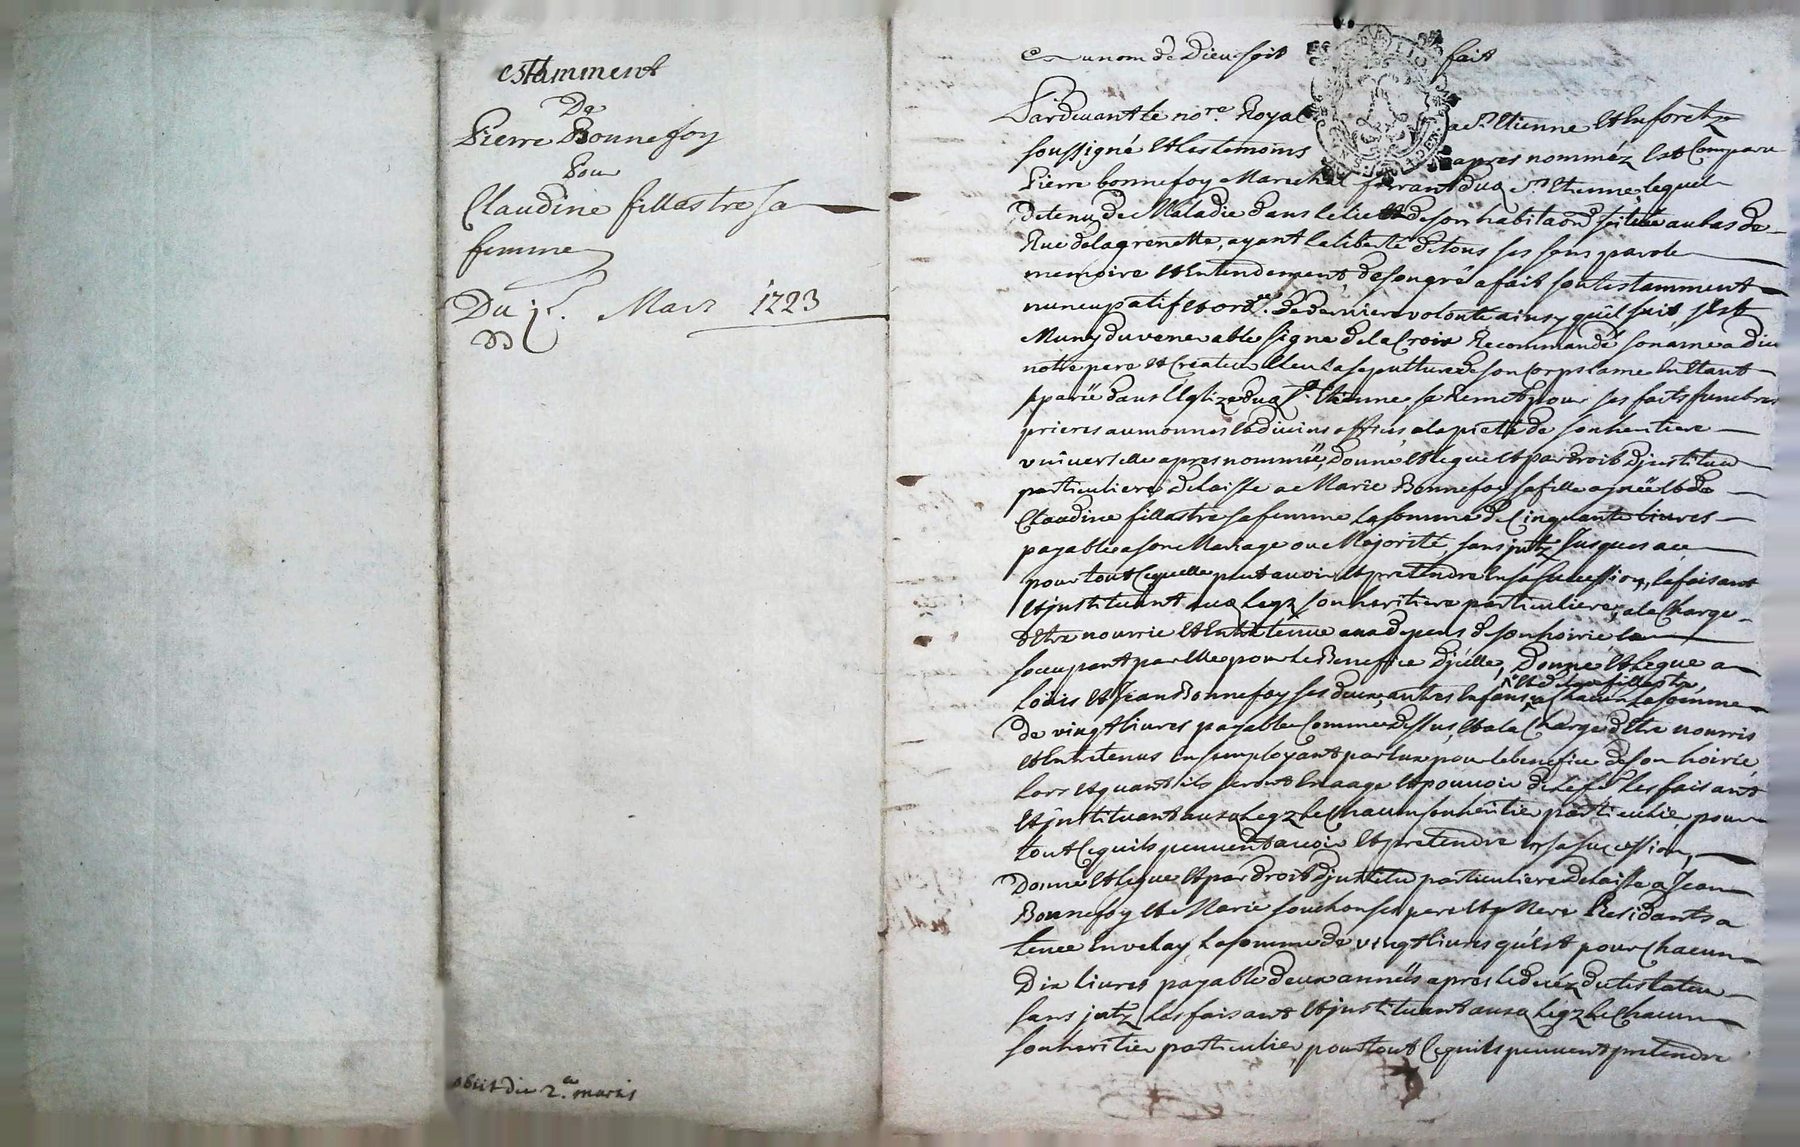 estamment
De
Pierre Bonnefoy
Pour
Claudine fillastre sa
femme
Du 1er. Mars 1723
obiit die 2a. martis
Au nom de Dieu soit fait
Pardevant le nore. Royal a St. Etienne et en foretz
soussigné et les temoins apres nomméz est Comparu
Pierre bonnefoy Marechal ferrant dud St. Etienne, lequel
detenu de Maladie dans le lict de son habitaon. scituée au bas de
Rue de la grenette, ayant la liberté de tous ses sens parole
memoire et Entendement, de son gré a fait son testamment
nuncupatif et ordce. de derniere volonté ainsy qu'il suit, s'est
Muny du venerable signe de la Croix Recommandé son ame a dieu
notre pere et Createur Eleu la sepulture de son Corps l'ame En Etant
separée dans L'Eglize dud St. Etienne se Remet pour ses faits funebres
prieres aumonnes et divins offices, a la pieté de son heritiere
universelle apres nommée, donne et legue et par droit d'institution
particuliere delaisse a Marie Bonnefoy sa fille aynée et de
Claudine fillastre sa femme la somme de Cinquante livres
payable a son Mariage ou Majorité, sans intz Jusques a ce
pour tout ce quelle peut avoir et pretendre En sa succession, la faisant
et instituant aud Legz son heritiere particuliere, a la Charge
d'Etre nourrie et Entretenue aux depens de son hoirie en
soccupant par Elle pour le Benefice d'jcelle, Donne et Legue a
Louis et Jean Bonnefoy ses deux autres Enfans et de lad fillastre Chacun la somme
de vingt livres payable Comme dessus, et a la Charge d'Etre nourris
et Entretenus En semployant par Eux pour le benefice de son hoirie
lors et quant ils seront En aage et pouvoir de le fe. les faisant
et instituant auxd Legz Chacun son heritier particulier, pour
tout ce quils peuvent avoir et pretendre En sa succession,
Donne et legue et par droit d'jnstitu particuliere delaisse a Jean
Bonnefoy et Marie souchon ses pere et Mere Residants a
tence En velay la somme de vingt livres qu'est pour Chacun
Dix livres payable deux années apres le decéz du testateur
sans jntz les faisant et jnstituant auxd Legz Chacun
son heritier particulier pour tout ce quils peuvent pretendre